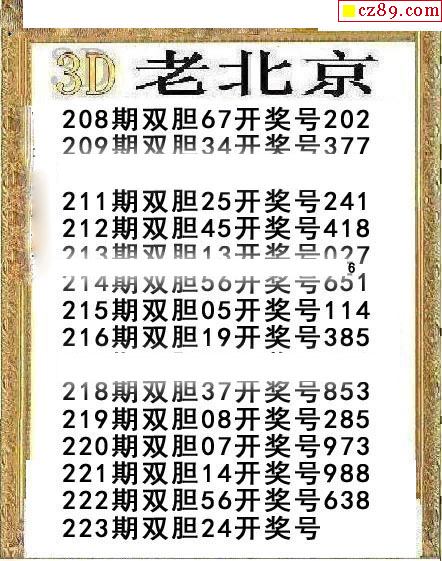 cz89.com
3D 老北京
208期双胆67开奖号202
209期双胆34开奖号377
211期双胆25开奖号241
212期双胆45开奖号418
213期双胆13开奖号027
6
214期双胆56开奖号651
215期双胆05开奖号114
216期双胆19开奖号385
218期双胆37开奖号853
219期双胆08开奖号285
220期双胆07开奖号973
221期双胆14开奖号988
222期双胆56开奖号638
223期双胆24开奖号